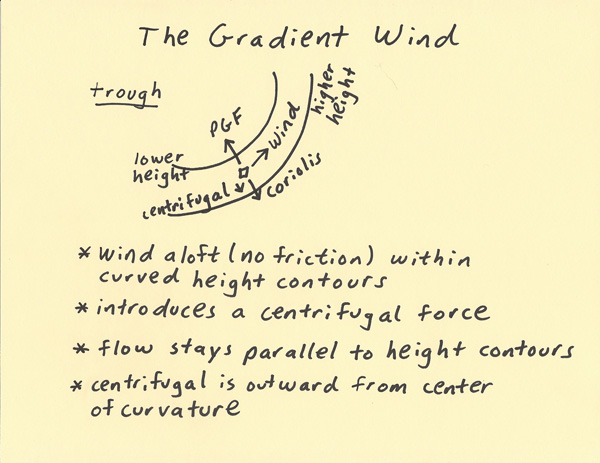 The Gradient Wind
trough
higher
height
PGF
wind
lower
height
centrifugal
coriolis
* wind aloft (no friction) within
curved height contours
* introduces a centrifugal force
* flow stays parallel to height contours
* centrifugal is outward from center
of curvature